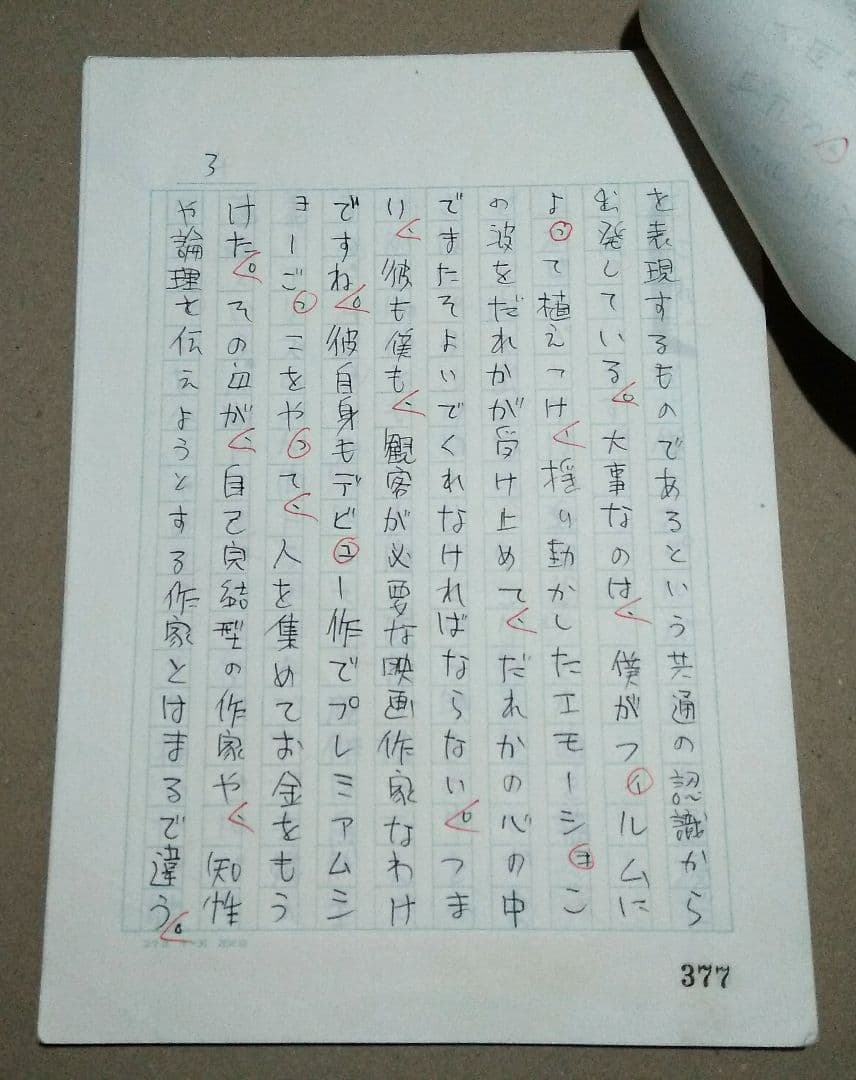 3
を表現するものであるという共通の認識から
出発している。大事なのは、僕がフィルムに
よって植えつけ、揺り動かしたエモーション
の波をだれかが受け止めて、だれかの心の中
でまたそよいでくれなければならない。つま
り、彼も僕も、観客が必要な映画作家なわけ
ですね。彼自身もデビュー作でプレミアムシ
ョーごっこをやって、人を集めてお金をもう
けた。その血が、自己完結型の作家や、知性
や論理を伝えようとする作家とはまるで違う。
377